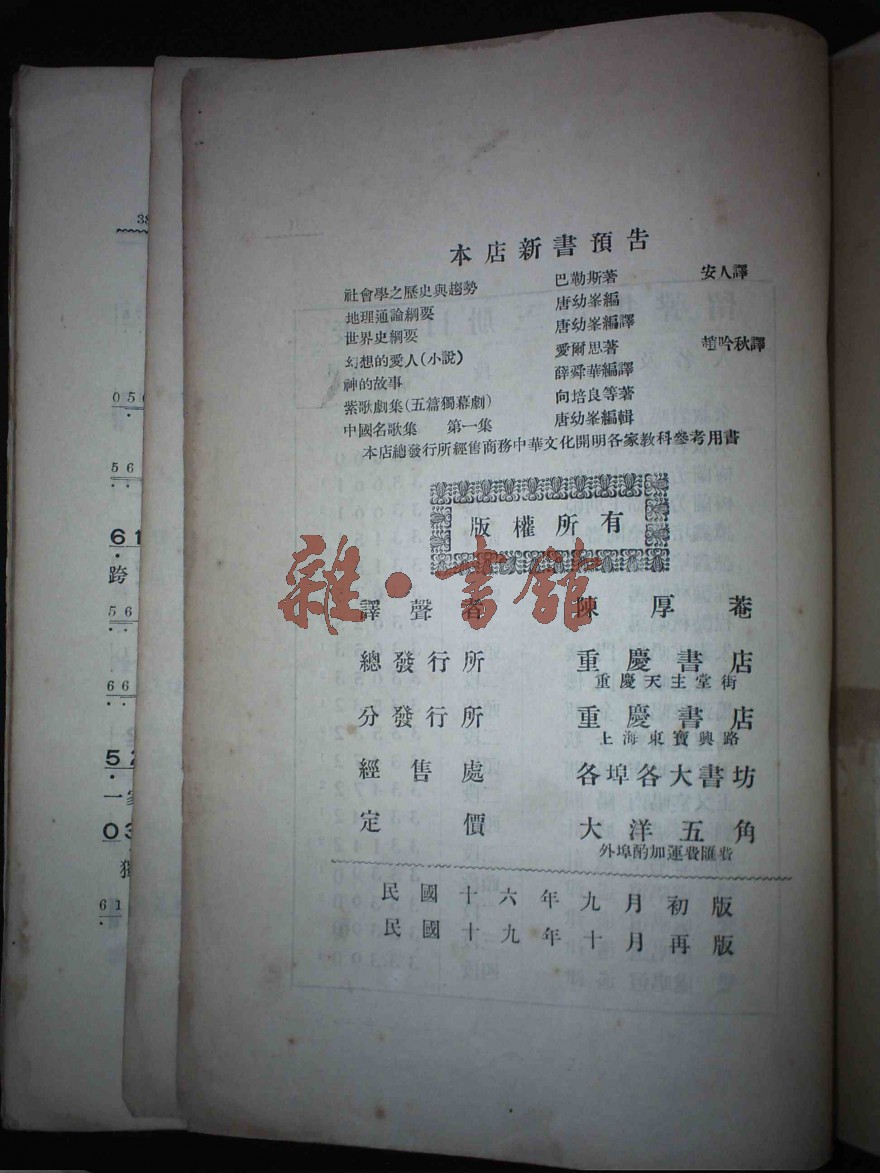 本店新書預告
社會學之歷史與趨勢 巴勒斯著 安人譯
地理通論綱要 唐幼峯編
世界史綱要 唐幼峯編譯
幻想的愛人(小說) 愛爾思著 趙吟秋譯
神的故事 薛舜華編譯
紫歌劇集(五篇獨幕劇) 向培良等著
中國名歌集 第一集 唐幼峯編輯
本店總發行所經售商務中華文化開明各家教科參考用書
版權所有
雜·書館
譯聲者 陳厚菴
總發行所 重慶書店
重慶天主堂街
分發行所 重慶書店
上海東寶興路
經售處 各埠各大書坊
定價 大洋五角
外埠酌加運費匯費
民國十六年九月初版
民國十九年十月再版
38
0 5 6
5 6
6 1
跨
5 6
6 6
5 2
一
0 3
6 1